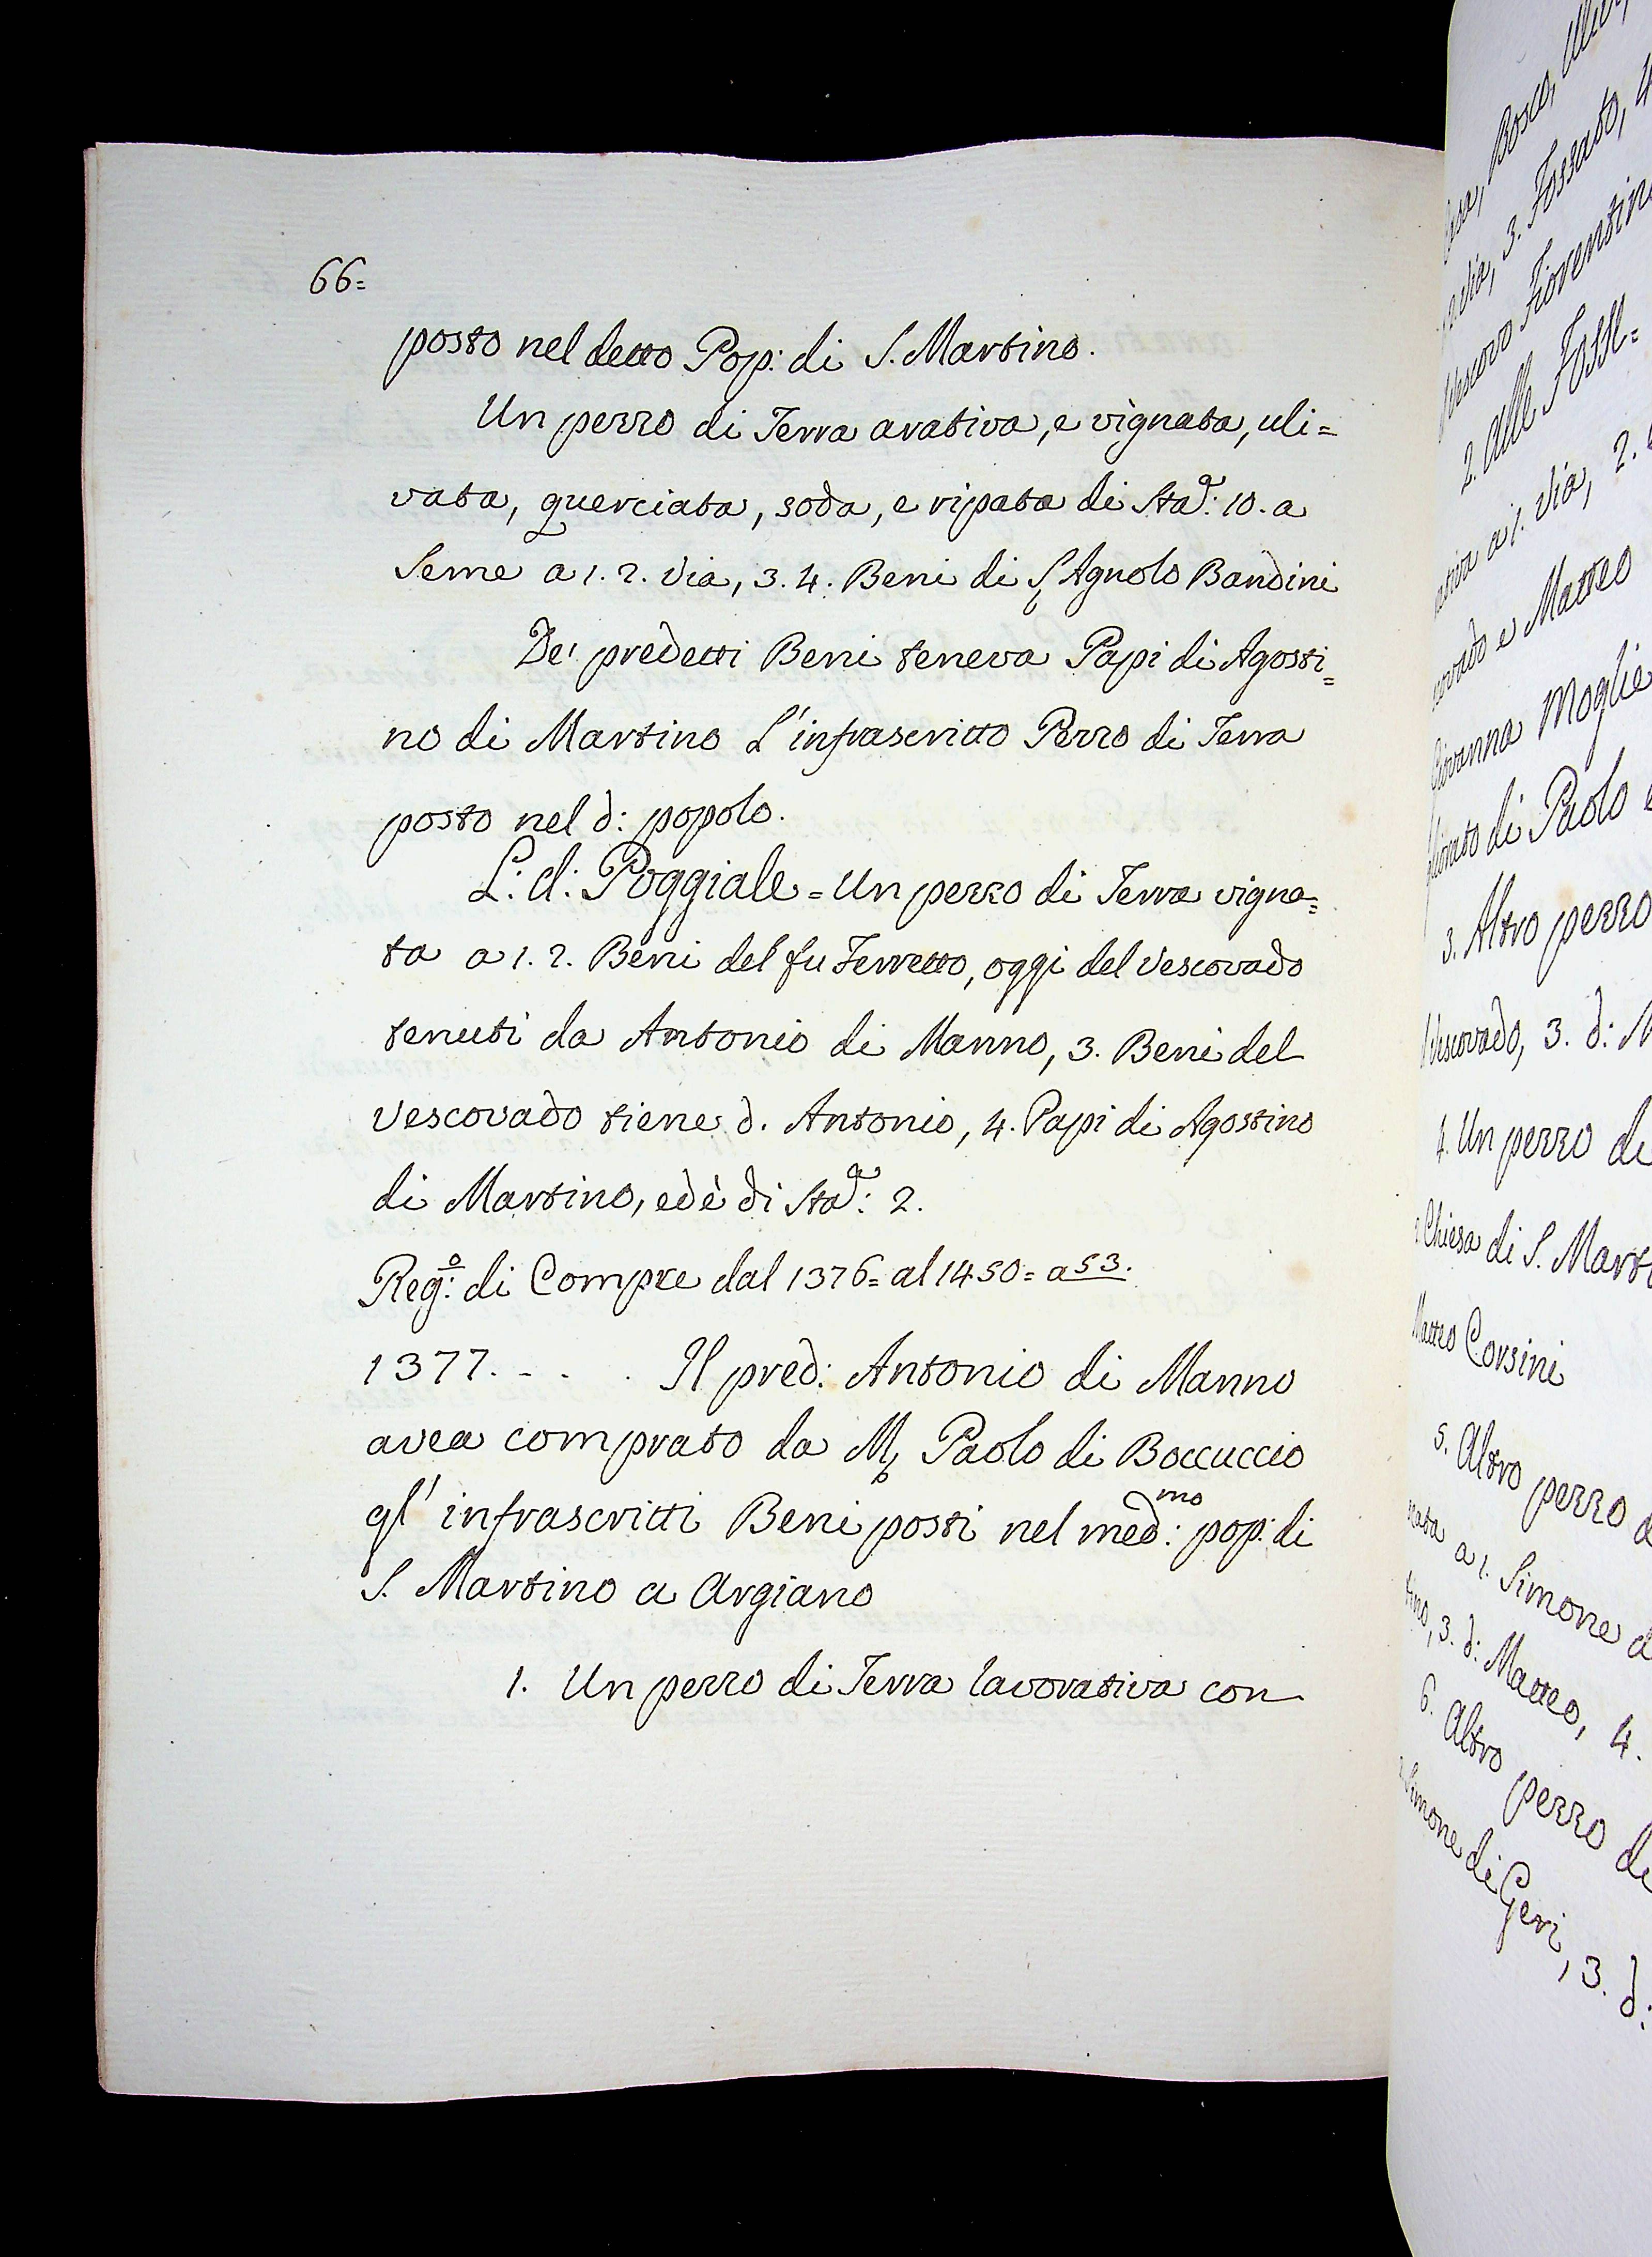 66=
posto nel detto Pop: di S. Martino.
Un pezzo di Terra arativa, e vignata, uli=
vata, querciata, soda, e ripata di Sta.ª: 10. a
Seme a 1. 2. Via, 3. 4. Beni di S. Agnolo Bandini
De' predetti Beni teneva Papi di Agosti=
no di Martino L'infrascritto Pezzo di Terra
posto nel d: popolo.
L: d: Poggiale = Un pezzo di Terra vigna=
ta a 1. 2. Beni del fu Ferretto, oggi del Vescovado
tenuti da Antonio di Manno, 3. Beni del
Vescovado tiene d. Antonio, 4. Papi di Agostino
di Martino, ed è di Sta.ª: 2.
Reg.º: di Compre dal 1376= al 1450= a 53.
1377. - . . Il pred: Antonio di Manno
avea comprato da M. Paolo di Boccuccio
gl' infrascritti Beni posti nel med:mo pop: di
S. Martino a Argiano
1. Un pezzo di Terra lavorativa con
Bosco,
via, 3. Fossato,
Vescovo Fiorentino
2. alle Fosse=
a 1. via, 2.
e Matteo
Giovanna Moglie
di Paolo
3. Altro pezzo
Vescovado, 3. d: M
4. Un pezzo di
Chiesa di S. Mart
Matteo Corsini
5. Altro pezzo d
a 1. Simone d
3. d: Matteo, 4.
6. Altro pezzo di
Simone di Geri, 3. d: